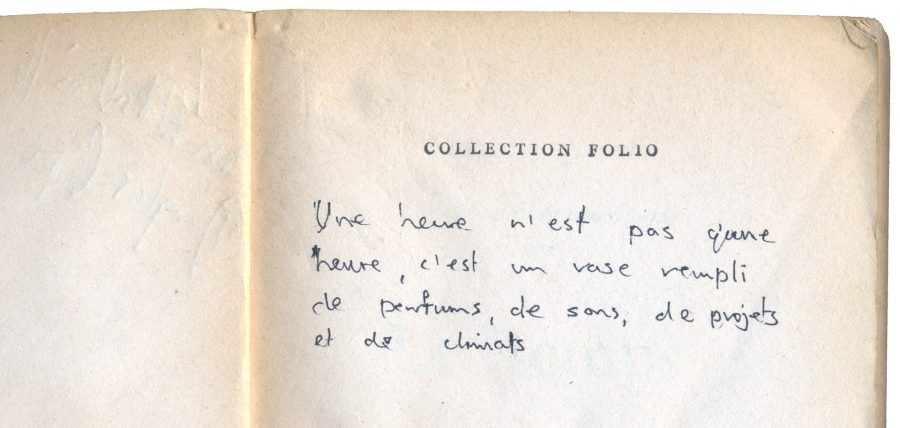 COLLECTION FOLIO
Une heure n'est pas qu'une
heure, c'est un vase rempli
de parfums, de sons, de projets
et de climats